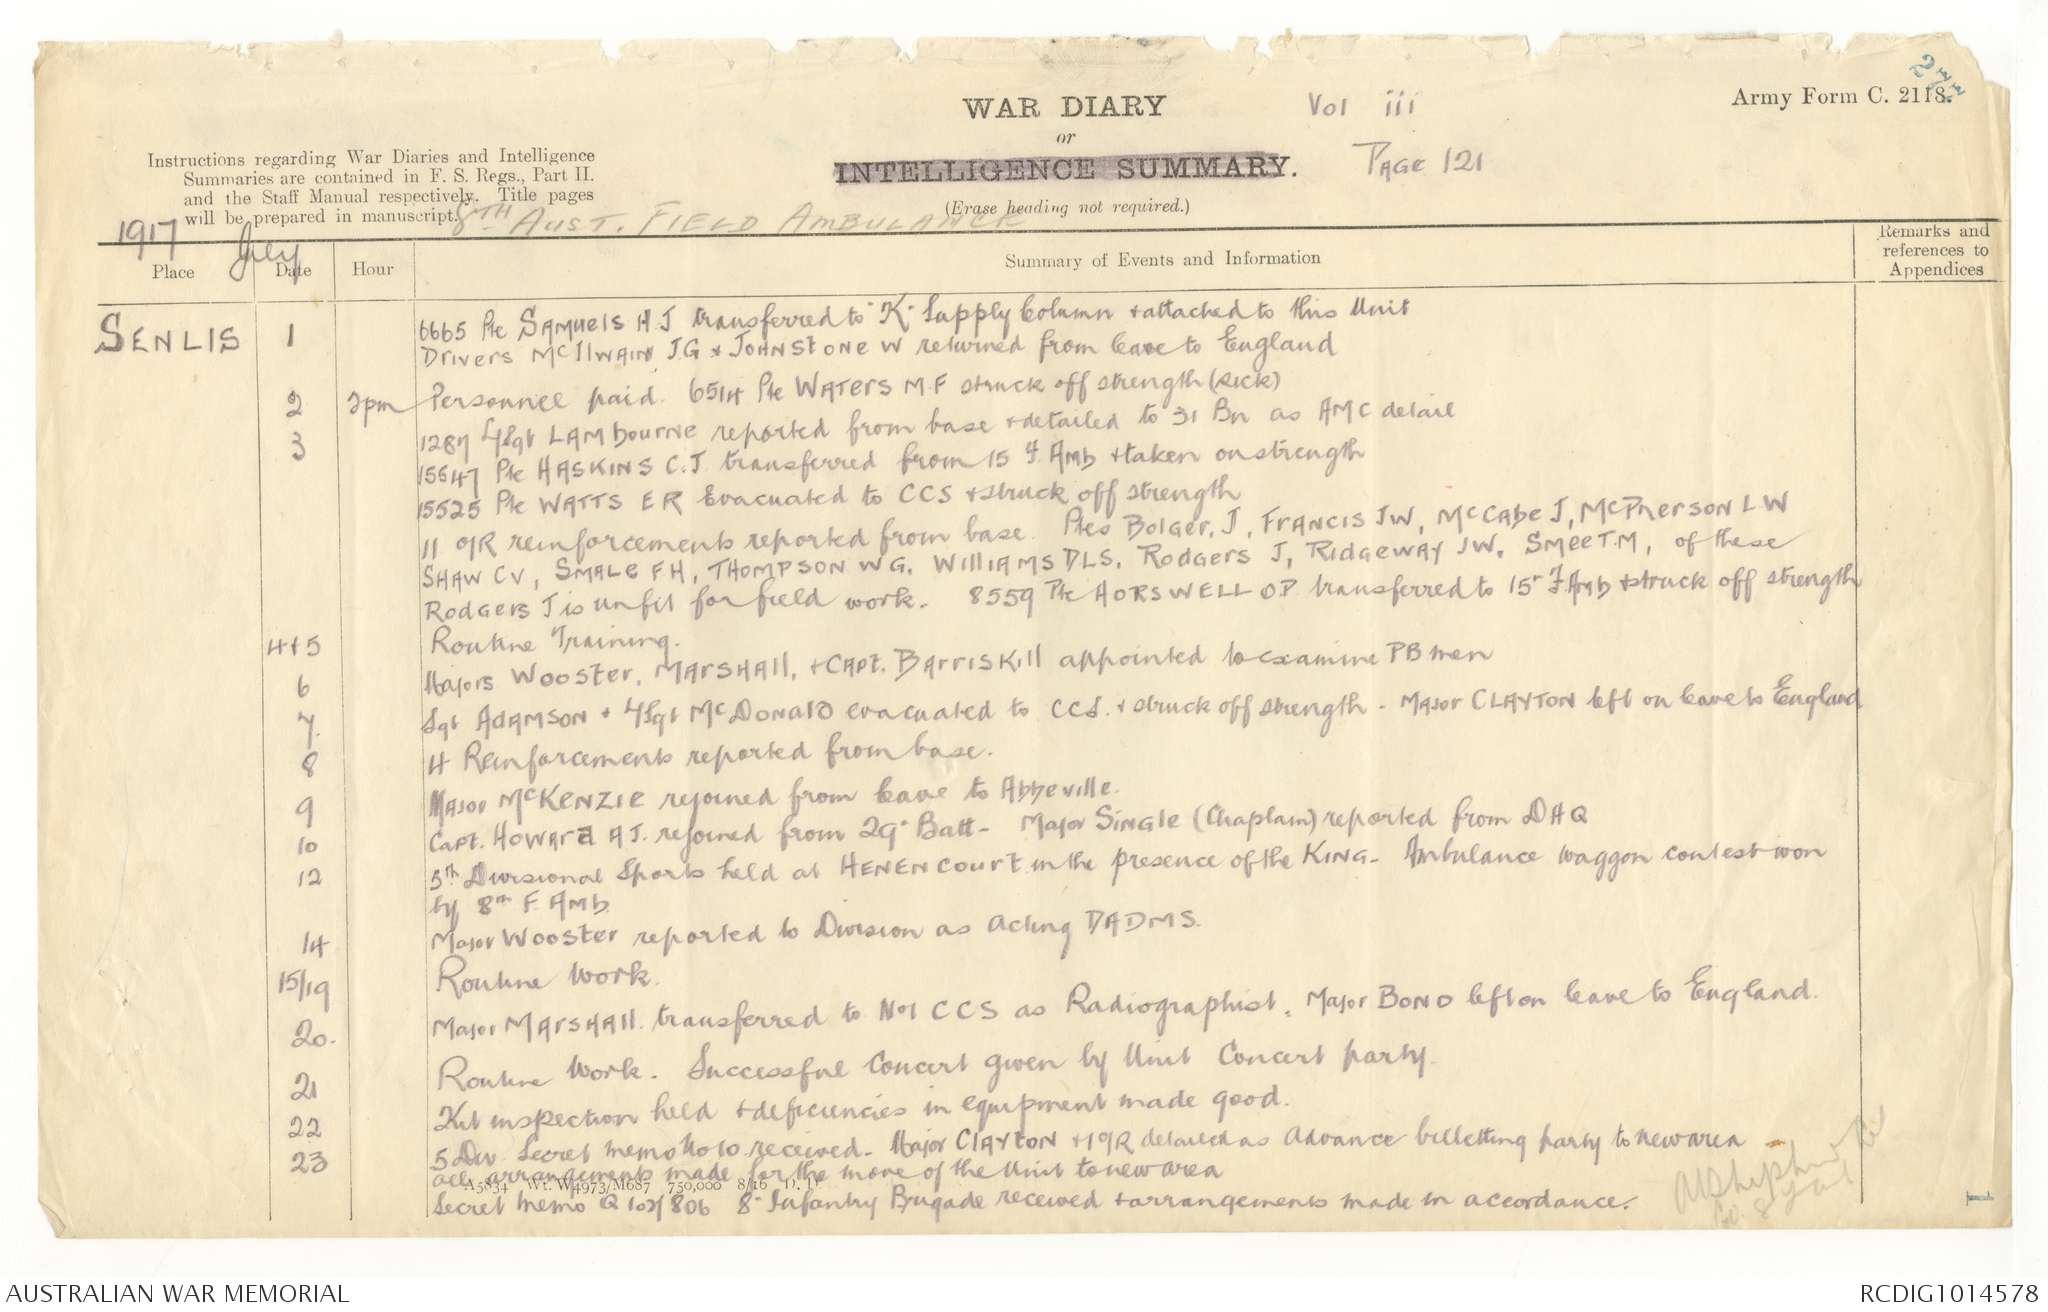 WAR DIARY
or
INTELLIGENCE SUMMARY.
(Erase heading not required.)
Vol iii
PAGE 121
Army Form C. 2118.
Instructions regarding War Diaries and Intelligence
Summaries are contained in F. S. Regs., Part II.
and the Staff Manual respectively. Title pages
will be prepared in manuscript.
8TH AUST. FIELD AMBULANCE
1917 July
Place Date Hour Summary of Events and Information Remarks and references to Appendices
SENLIS 1 6665 Pte SAMUELS H J transferred to "K" Supply Column & attached to this Unit
Drivers McIlWAIN J.G & JOHNSTONE W returned from leave to England
2 2pm Personnel paid. 6514 Pte WATERS M F struck off strength (sick)
3 1287 L/Sgt LAMBOURNE reported from base & detailed to 31 Bn as AMC detail
15547 Pte HASKINS C.J. transferred from 15 F. Amb & taken on strength
15525 Pte WATTS E R Evacuated to CCS & struck off strength
11 O/R reinforcements reported from base. Ptes BOLGER, J, FRANCIS JW, McCABE J, McPHERSON L W
SHAW CV, SMALE F H, THOMPSON W G, WILLIAMS DLS, RODGERS J, RIDGEWAY JW, SMEE T.M, of these
RODGERS J is unfit for field work. 8559 Pte HORSWELL O.P transferred to 15 F Amb & struck off strength
4+5 Routine Training.
6 Majors WOOSTER, MARSHALL, & CAPT. BARRISKILL appointed to examine PB men
7. Sgt ADAMSON & L/Sgt McDONALD evacuated to CCS. & struck off strength - Major CLAYTON left on leave to England
8 4 Reinforcements reported from base.
9 Major McKENZIE rejoined from leave to Abbeville.
10 Capt. HOWARD A J. rejoined from 29 Batt - Major SINGLE (Chaplain) reported from DHQ
12 5th Divisional Sports held at HENENCOURT in the presence of the KING - Ambulance waggon contest won
by 8th F. AMB.
14 Major WOOSTER reported to Division as acting DADMS.
15/19 Routine Work.
20. Major MARSHALL transferred to No1 CCS as Radiographist. Major BOND left on leave to England.
21 Routine Work. Successful Concert given by Unit Concert party.
22 Kit inspection held & deficiencies in equipment made good.
23 5 Div. Secret memo No 10 received. Major CLAYTON + 1 O/R detailed as Advance billetting party to new area
all arrangements made for the move of the Unit to new area
A5834 Wt. W4973/M687 750,000 8/16 D. D.
Secret memo Q 102/806 8 Infantry Brigade received & arrangements made in accordance.
AUSTRALIAN WAR MEMORIAL
RCDIG1014578